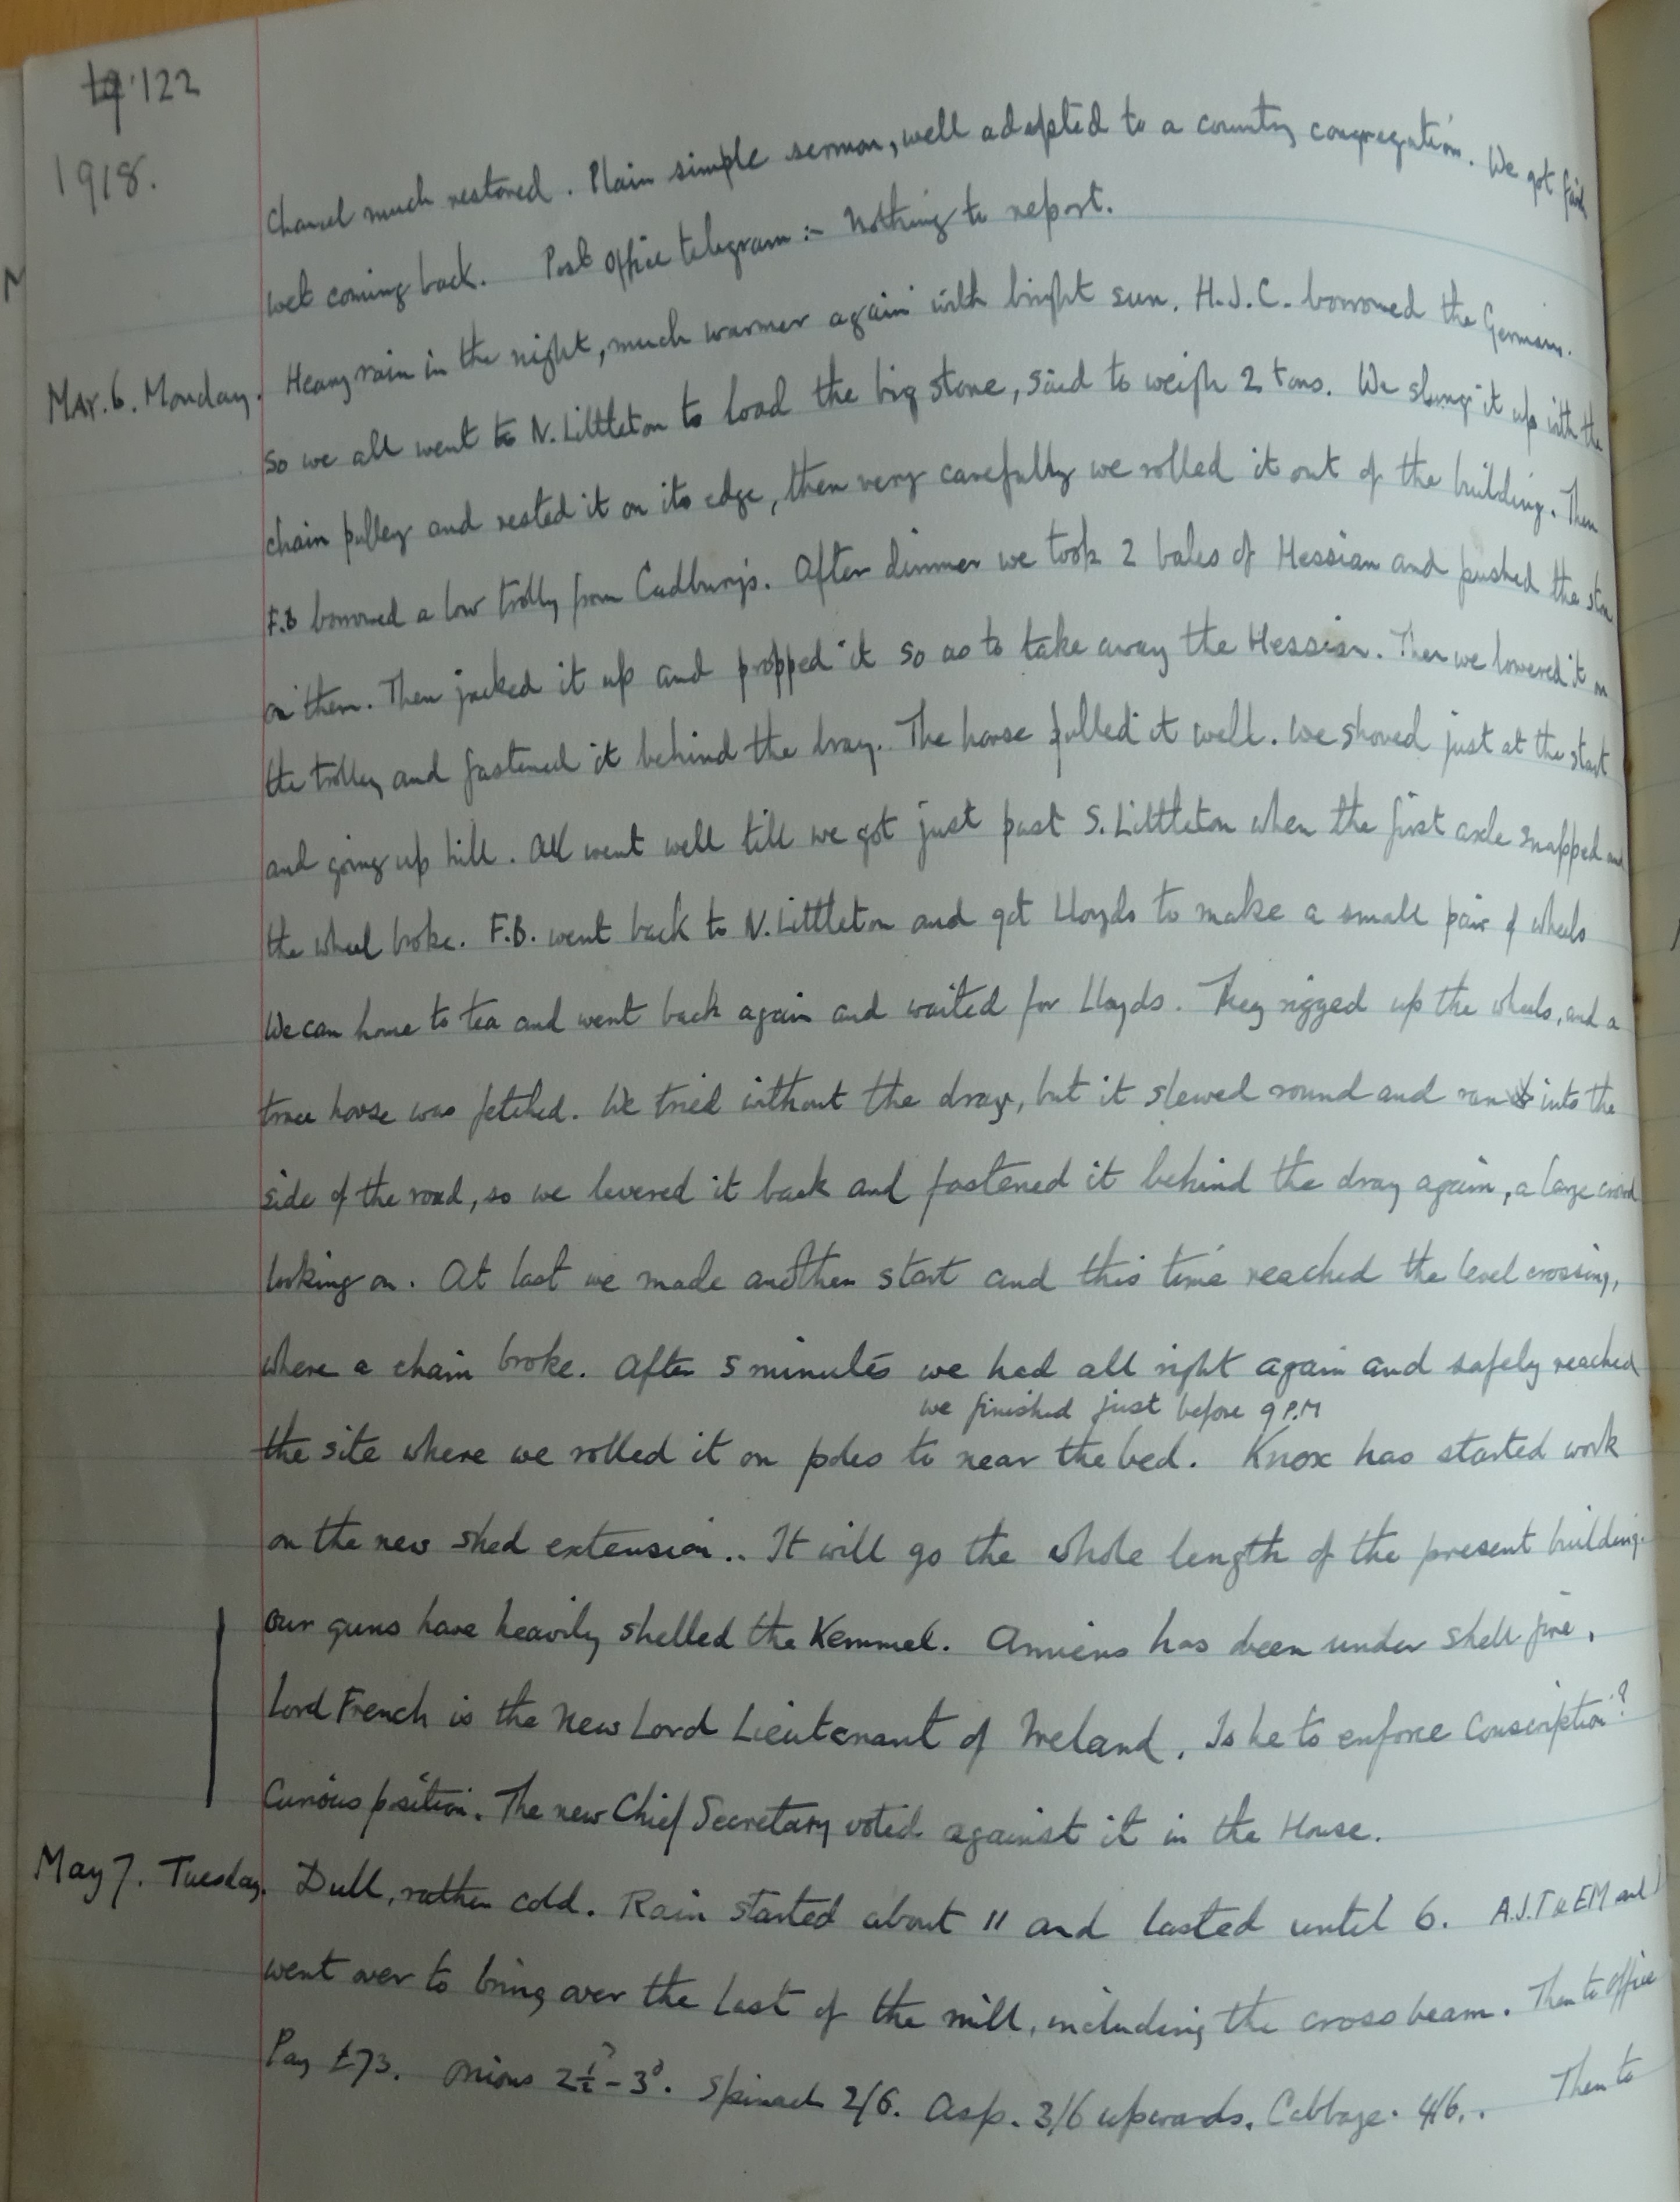 122
1918.
Chancel much restored. Plain simple sermon, well adapted to a country congregation. We got fairly
wet coming back. Post Office telegram :- Nothing to report.
Mar. 6. Monday. Heavy rain in the night, much warmer again with bright sun. H.J.C. borrowed the Germans.
So we all went to N. Littleton to load the big stone, said to weigh 2 tons. We slung it up with the
chain pulley and rested it on its edge, then very carefully we rolled it out of the building. Then
F.B borrowed a low trolly from Cadbury's. After dinner we took 2 bales of Hessian and pushed the stone
on them. Then jacked it up and propped it so as to take away the Hessian. Then we lowered it on
the trolley and fastened it behind the dray. The horse pulled it well. We shoved just at the start
and going up hill. All went well till we got just past S. Littleton when the first axle snapped and
the wheel broke. F.B. went back to N. Littleton and got Lloyds to make a small pair of wheels
We can home to tea and went back again and waited for Lloyds. They rigged up the wheels, and a
trace horse was fetched. We tried without the dray, but it slewed round and ran into the
side of the road, so we levered it back and fastened it behind the dray again, a large crowd
looking on. At last we made another start and this time reached the level crossing,
where a chain broke. After 5 minutes we had all right again and safely reached
we finished just before 9 P.M
the site where we rolled it on poles to near the bed. Knox has started work
on the new shed extension.. It will go the whole length of the present building.
Our guns have heavily shelled the Kemmel. Amiens has been under shell fire.
Lord French is the New Lord Lieutenant of Ireland. Is he to enforce Conscription?
Curious position. The new Chief Secretary voted against it in the House.
May 7. Tuesday. Dull, rather cold. Rain started about 11 and lasted until 6. A.J.T & EM and I
went over to bring over the last of the mill, including the cross beam. Then to office
Pay £73. Onions 2½d - 3d. Spinach 2/6. Asp. 3/6 upwards. Cabbage. 4/6.. Then to